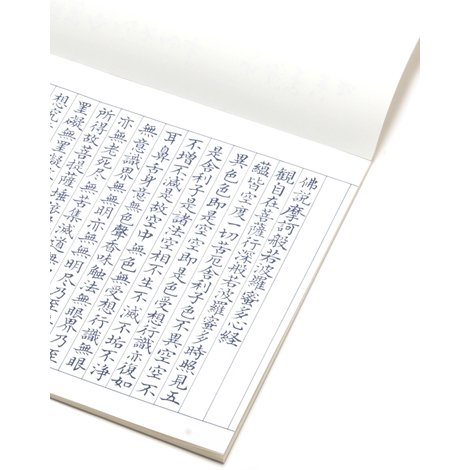 佛説摩訶般若波羅蜜多心経
観自在菩薩行深般若波羅蜜多時照見五
蘊皆空度一切苦厄舎利子色不異空空不
異色色即是空空即是色受想行識亦復如
是舎利子是諸法空相不生不滅不垢不浄
不増不減是故空中無色無受想行識無眼
耳鼻舌身意無色聲香味触法無眼界乃至
無意識界無無明亦無無明尽乃至
亦無老死尽無苦集滅道無
所得故菩提薩埵
罣礙無罣礙
想究